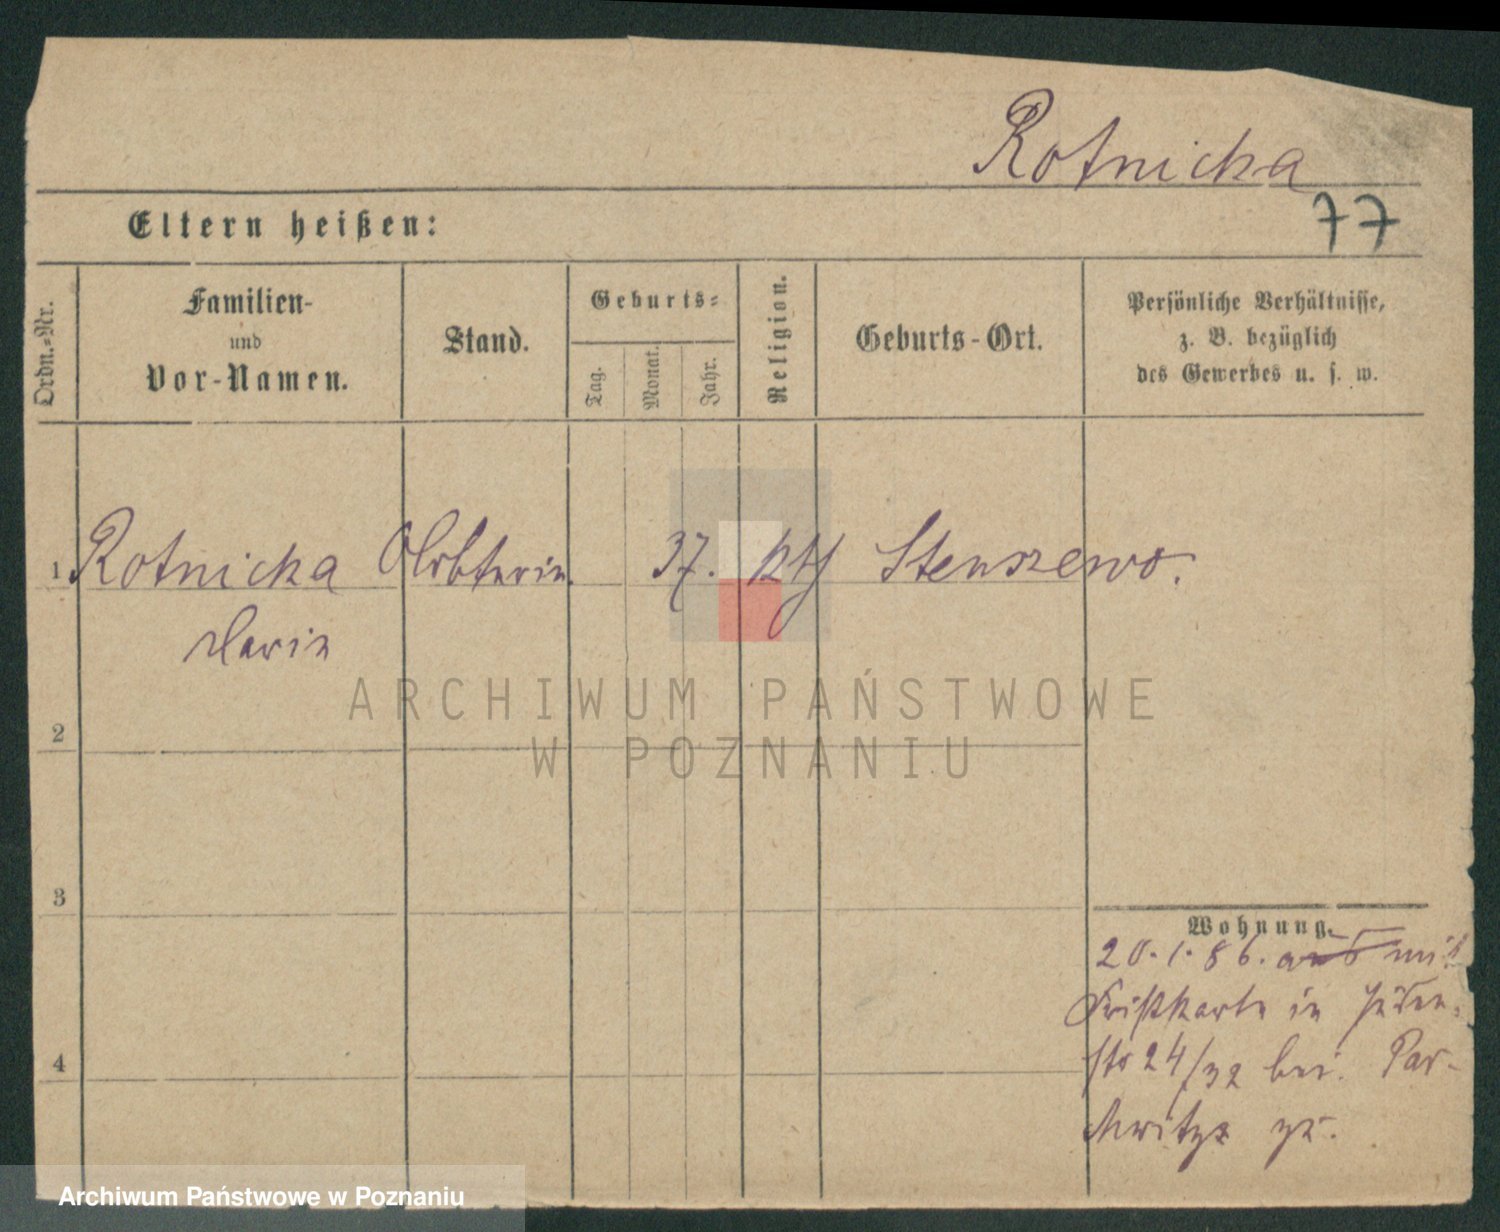 Rotnicka
77
Eltern heißen:
Ordn.=Nr.
Familien-
und
Vor-Namen.
Stand.
Geburts=
Tag.
Monat.
Jahr.
Religion.
Geburts-Ort.
Persönliche Verhältnisse,
z. B. bezüglich
des Gewerbes u. s. w.
1 Rotnicka Arbterin. 37. kth Stenszewo.
Marie
ARCHIWUM PAŃSTWOWE
2
W POZNANIU
3
Wohnung.
20.1.86. aus mit
Fristkarte in Juden-
4
str 24/32 bei.
zu.
Archiwum Państwowe w Poznaniu